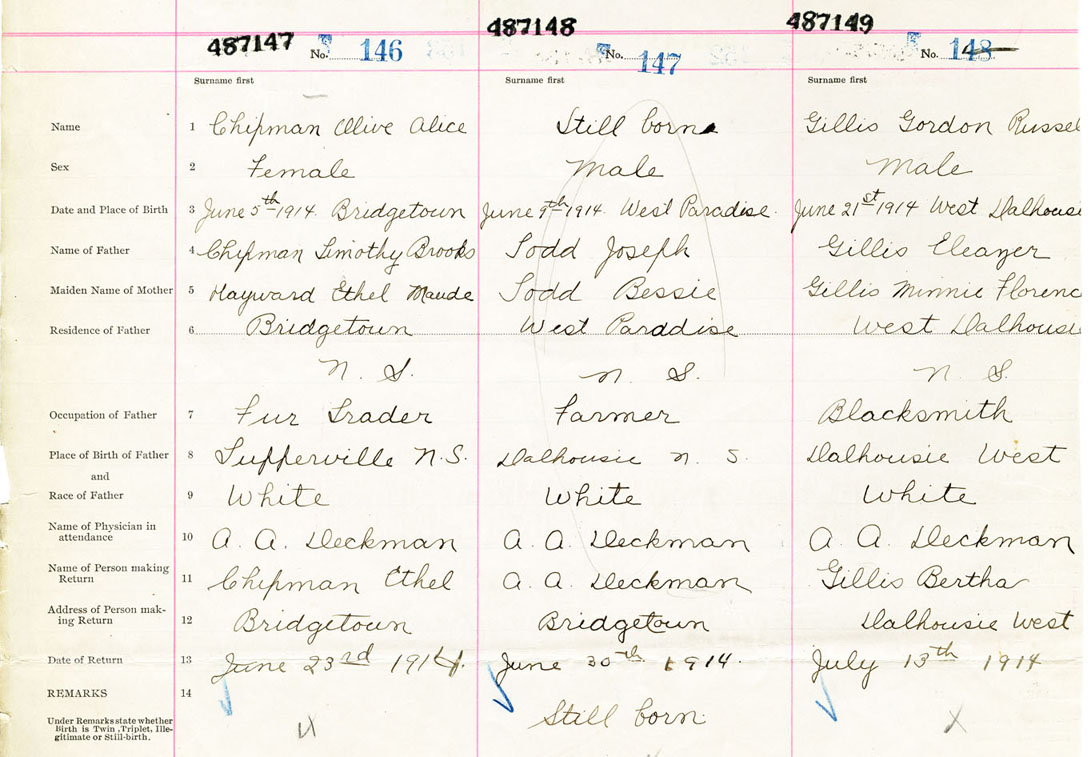 487147 487148 487149
No. 146 No. 147 No. 148
Surname first Surname first Surname first
Name 1 Chipman Olive Alice Still born Gillis Gordon Russel
Sex 2 Female Male Male
Date and Place of Birth 3 June 5th 1914. Bridgetown June 9th 1914. West Paradise. June 21st 1914 West Dalhousie
Name of Father 4 Chipman Timothy Brooks Todd Joseph Gillis Eleazer
Maiden Name of Mother 5 Hayward Ethel Maude Todd Bessie Gillis Minnie Florenc
Residence of Father 6 Bridgetown West Paradise West Dalhousie
N. S. N. S. N. S.
Occupation of Father 7 Fur Trader Farmer Blacksmith
Place of Birth of Father 8 Tupperville N.S. Dalhousie N. S. Dalhousie West
and
Race of Father 9 White White White
Name of Physician in
attendance 10 A. A. Deckman A. A. Deckman A A. Deckman
Name of Person making
Return 11 Chipman Ethel A. A. Deckman Gillis Bertha
Address of Person mak-
ing Return 12 Bridgetown Bridgetown Dalhousie West
Date of Return 13 June 23rd 1914. June 30th 1914. July 13th 1914
REMARKS 14
Under Remarks state whether
Birth is Twin, Triplet, Ille-
gitimate or Still-birth.
Still born